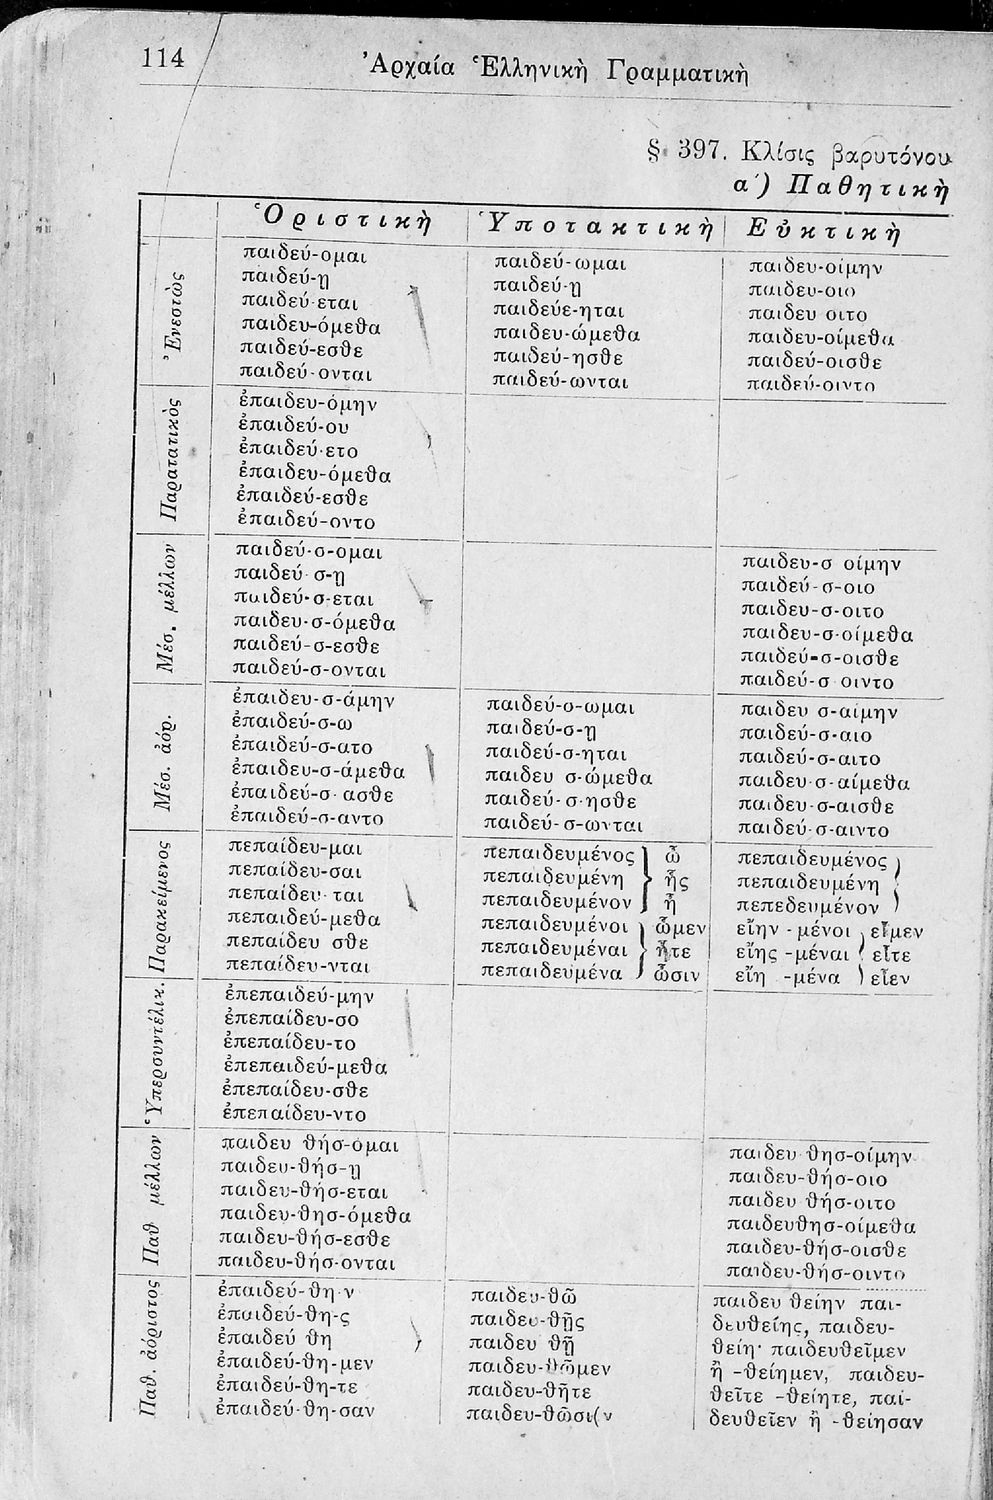 114
Ἀρχαία Ἑλληνικὴ Γραμματικὴ
§ 397. Κλίσις βαρυτόνου
α΄) Παθητικὴ
Ὁριστικὴ
Ὑποτακτικὴ
Εὐκτικὴ
Ἐνεστὼς
παιδεύ-ομαι
παιδεύ-ῃ
παιδεύ εται
παιδευ-όμεθα
παιδεύ-εσθε
παιδεύ-ονται
παιδεύ-ωμαι
παιδεύ-ῃ
παιδεύε-ηται
παιδευ-ώμεθα
παιδεύ-ησθε
παιδεύ-ωνται
παιδευ-οίμην
παιδευ-οιο
παιδευ οιτο
παιδευ-οίμεθα
παιδεύ-οισθε
παιδεύ-οιντο
Παρατατικὸς
ἐπαιδευ-όμην
ἐπαιδεύ-ου
ἐπαιδεύ-ετο
ἐπαιδευ-όμεθα
ἐπαιδεύ-εσθε
ἐπαιδεύ-οντο
Μέσ. μέλλων
παιδεύ-σ-ομαι
παιδεύ σ-ῃ
παιδεύ-σ-εται
παιδευ-σ-όμεθα
παιδεύ-σ-εσθε
παιδεύ-σ-ονται
παιδευ-σ οίμην
παιδεύ-σ-οιο
παιδευ-σ-οιτο
παιδευ-σ-οίμεθα
παιδεύ-σ-οισθε
παιδεύ-σ οιντο
Μέσ. ἀόρ.
ἐπαιδευ-σ-άμην
ἐπαιδεύ-σ-ω
ἐπαιδεύ-σ-ατο
ἐπαιδευ-σ-άμεθα
ἐπαιδεύ-σ-ασθε
ἐπαιδεύ-σ-αντο
παιδεύ-ο-ωμαι
παιδεύ-σ-ῃ
παιδεύ-σ-ηται
παιδευ σ-ώμεθα
παιδεύ-σ-ησθε
παιδεύ-σ-ωνται
παιδευ σ-αίμην
παιδεύ-σ-αιο
παιδεύ-σ-αιτο
παιδευ-σ-αίμεθα
παιδευ-σ-αισθε
παιδεύ-σ-αιντο
Παρακείμενος
πεπαίδευ-μαι
πεπαίδευ-σαι
πεπαίδευ-ται
πεπαιδεύ-μεθα
πεπαίδευ σθε
πεπαίδευ-νται
πεπαιδευμένος } ὦ
πεπαιδευμένη } ᾖς
πεπαιδευμένον } ᾖ
πεπαιδευμένοι } ὦμεν
πεπαιδευμέναι } ἦτε
πεπαιδευμένα } ὦσιν
πεπαιδευμένος )
πεπαιδευμένη )
πεπεδευμένον )
εἴην - μένοι ) εἶμεν
εἴης -μέναι ) εἶτε
εἴη -μένα ) εἶεν
Ὑπερσυντέλικ.
ἐπεπαιδεύ-μην
ἐπεπαίδευ-σο
ἐπεπαίδευ-το
ἐπεπαιδεύ-μεθα
ἐπεπαίδευ-σθε
ἐπεπαίδευ-ντο
Παθ μέλλων
παιδευ θήσ-ομαι
παιδευ-θήσ-ῃ
παιδευ-θήσ-εται
παιδευ-θησ-όμεθα
παιδευ-θήσ-εσθε
παιδευ-θήσ-ονται
παιδευ θησ-οίμην
παιδευ-θήσ-οιο
παιδευ θήσ-οιτο
παιδευθησ-οίμεθα
παιδευ-θήσ-οισθε
παιδευ-θήσ-οιντο
Παθ. ἀόριστος
ἐπαιδεύ-θη-ν
ἐπαιδεύ-θη-ς
ἐπαιδεύ θη
ἐπαιδεύ-θη-μεν
ἐπαιδεύ-θη-τε
ἐπαιδεύ-θη-σαν
παιδευ-θῶ
παιδευ-θῇς
παιδευ θῇ
παιδευ-θῶμεν
παιδευ-θῆτε
παιδευ-θῶσι(ν
παιδευ θείην παι-
δευθείης, παιδευ-
θείη· παιδευθεῖμεν
ἢ -θείημεν, παιδευ-
θεῖτε -θείητε, παι-
δευθεῖεν ἢ -θείησαν